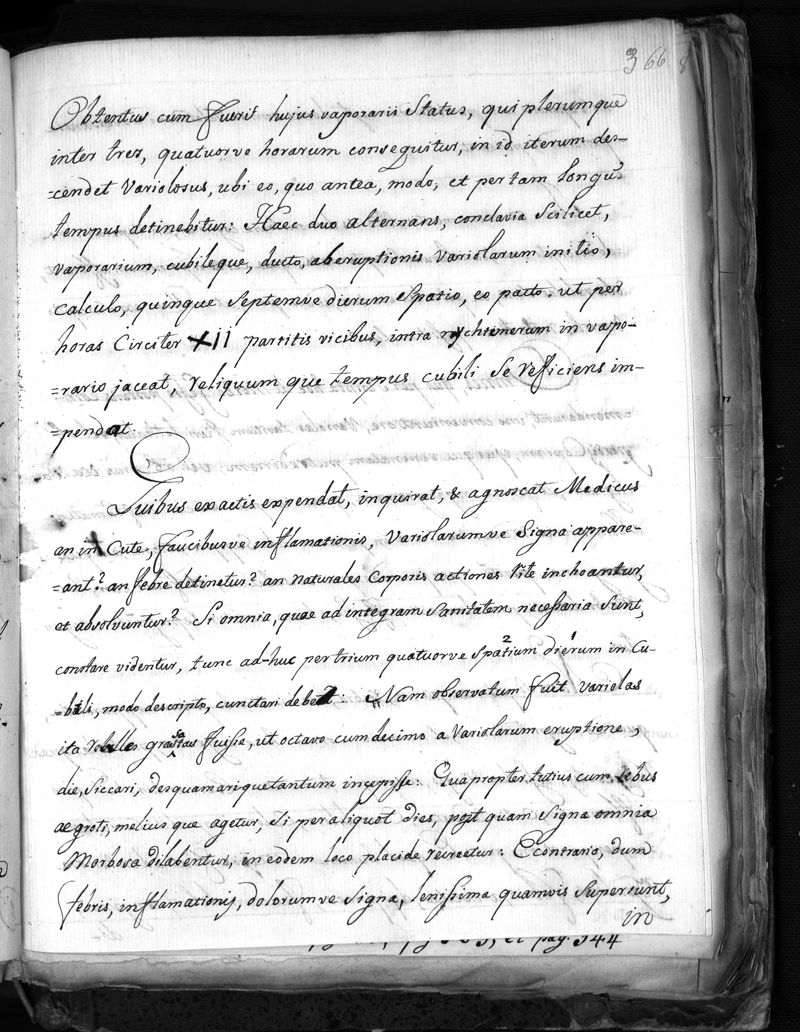 366
8
Obtentus cum fuerit hujus vaporaris Status, qui plerumque
inter tres, quatuorve horarum consequitur, in id iterum des-
-cendet Variolosus, ubi eo, quo antea, modo, et per tam longũ
tempus detinebitur: Haec duo alternans, conclavia Scilicet,
vaporarium, cubileque, ducto, ab eruptionis Variolarum initio,
calculo, quinque Septemve dierum Spatio, eo pacto, ut per
horas Circiter XII partitis vicibus, intra nychtimerum in vapo-
=rario jaceat, reliquum que tempus cubili Se reficiens im-
=pendat
Quibus exactis expendat, inquirat, & agnoscat Medicus
an in Cute, faucibusve inflamationis, Variolarumve Signa appare-
=ant? an febre detinetur? an naturales Corporis actiones rite inchoantur,
et absolvuntur? Si omnia, quae ad integram Sanitatem necessaria Sunt,
constare videntur, tunc ad-huc per trium quatuorve Spatium dierum in Cu-
-bili, modo descripto, cunctari debet: Nam observatum fuit Variolas
ita rebelles fuisse, ut octavo cum decimo a Variolarum eruptione,
die, Siccari, desquamarique tantum incepisse: Quapropter tutius cum
aegroti, melius que agetur, Si per aliquot dies, post quam Signa omnia
Morbosa dilabentur, in eodem loco placide recreetur: E contrario, dum
febris, inflamationis, dolorumve Signa, lenissima quamvis Supersunt,
in
et pag. 344